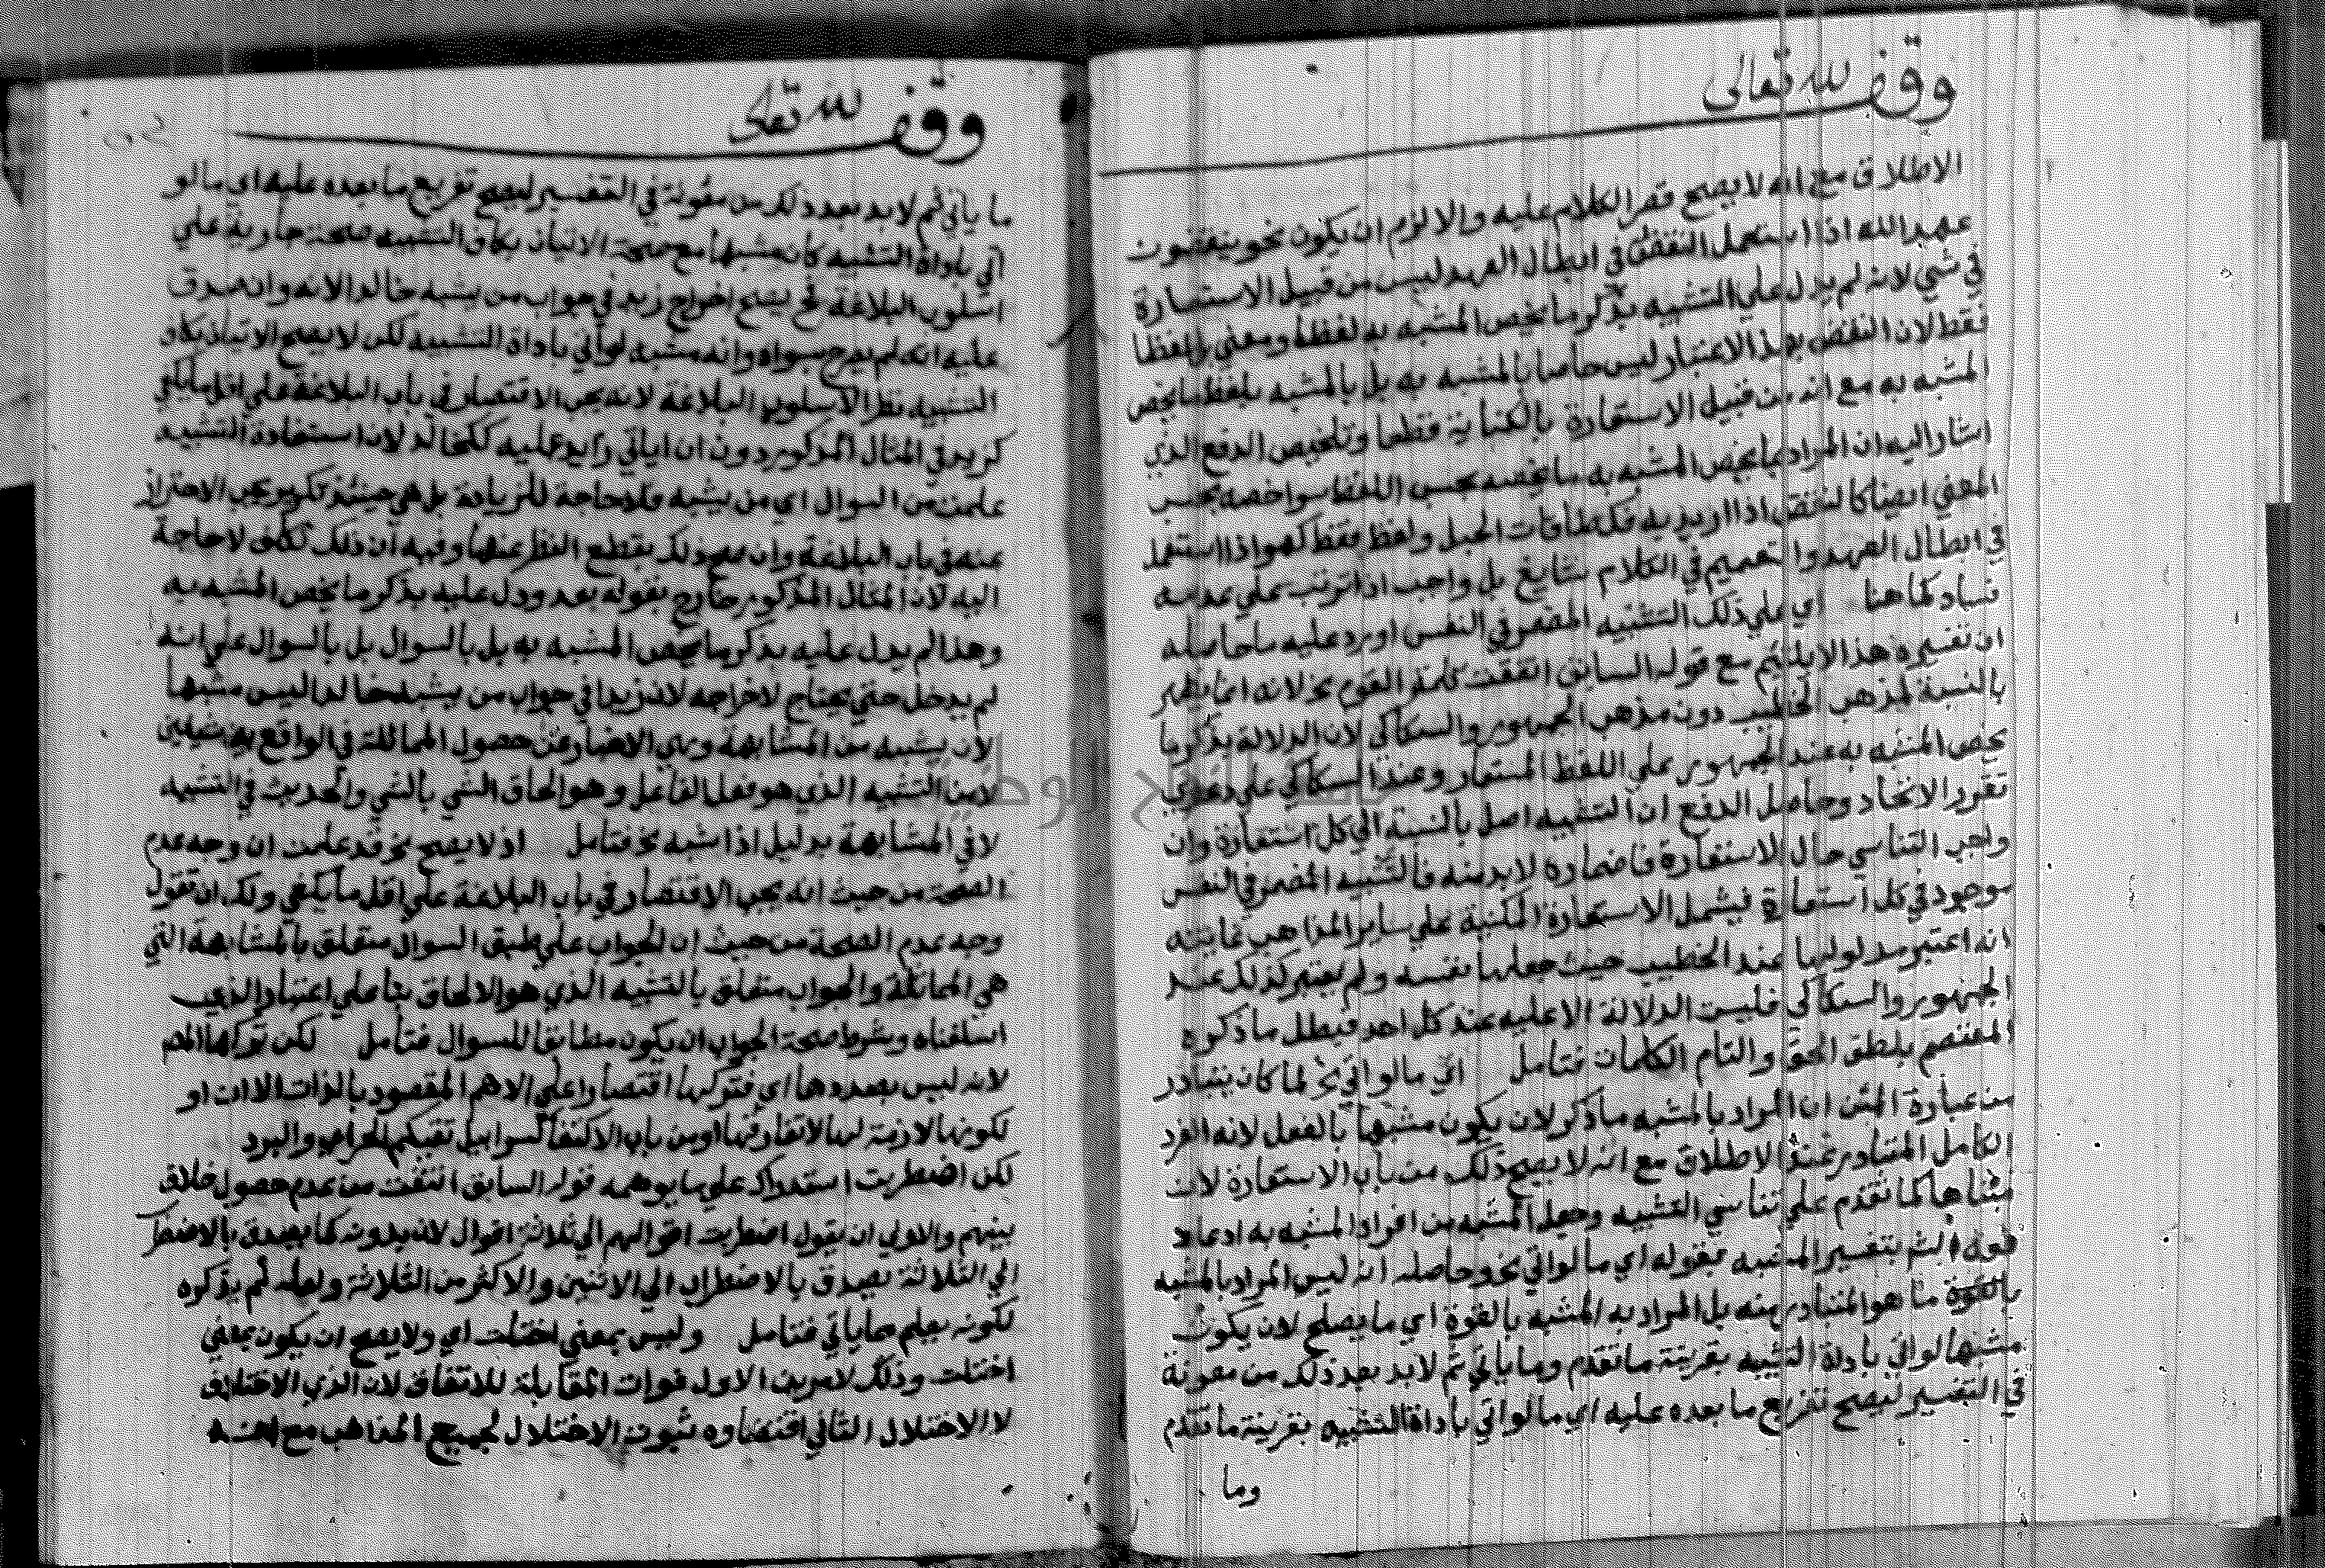 وقف لله تعالى
الاطلاق مع انه لا يصح قصر الكلام عليه والا لزم ان يكون نحو ينقضون
عهد الله اذا استعمل النقض في ابطال العهد ليس من قبيل الاستعارة
في شي لانه لم يدل علي التشبيه بذكر ما يخص المشبه به لفظا ومعني بل لفظا
فقط لان النقض بهذا الاعتبار ليس خاصا بالمشبه به بل بالمشبه بلفظ ما يخص
المشبه به مع انه من قبيل الاستعارة بالكناية قطعا وتلخيص الدفع الذي
اشار اليه ان المراد بما يخص المشبه به ما يخصه بحسب اللفظ سوا خصه بحسب
المعني ايضا كالنقض اذا اريد به فك طاقات الحبل ولفظ فقط كهو اذا استعمل
في ابطال العهد والتعميم في الكلام شايع بل واجب اذا ترتب علي عدمه
فساد كما هنا اي علي ذلك التشبيه المضمر في النفس اورد عليه ما حاصله
ان تفسيره هذا لا يلتئم مع قوله السابق اتفقت كلمة القوم نخ لانه انما يظهر
بالنسبة لمذهب الخطيب دون مذهب الجمهور والسكاكي لان الدلالة بذكر ما
يخص المشبه به عند الجمهور علي اللفظ المستعار وعند السكاكي علي دعوي
تقرر الاتحاد وحاصل الدفع ان التشبيه اصل بالنسبة الي كل استعارة وان
وجب التناسي حال الاستعارة فاضماره لابد منه فالتشبيه المضمر في النفس
موجود في كل استعارة ليشمل الاستعارة المكنية علي ساير المذاهب غايته
انه اعتبر مدلولها عند الخطيب حيث جعلها نفسه ولم يعتبر كذلك عند
الجمهور والسكاكي فليست الدلالة الا عليه عند كل احد فبطل ما ذكره
المعتصم بلطق الحق والتام الكلمات فتامل اي ما لو اتي نخ لما كان يتبادر
من عبارة المتن ان المراد بالمشبه ما ذكر لان يكون مشبها بالفعل لانه الفرد
الكامل المتبادر عند الاطلاق مع انه لا يصح ذلك من باب الاستعارة لان
مبناها كما تقدم علي تناسي التشبيه وجعل المشبه من افراد المشبه به ادعاء
الش بتفسير المشبه بقوله اي ما لو اتي نخ وحاصله انه ليس المراد بالمشبه
بالقوة ما هو المتبادر منه بل المراد به المشبه بالقوة اي ما يصلح لان يكون
مشبها لو اتي باداة التشبيه بقرينة ما تقدم وما ياتي ثم لابد بعد ذلك من معونة
في التفسير ليصح تفريع ما بعده عليه اي ما لو اتي باداة التشبيه بقرينة ما تقدم
وما
وقف لله تعالى
ما ياتي ثم لابد بعد ذلك من معونة في التفسير ليصح تفريع ما بعده عليه اي ما لو
اتي باداة التشبيه كان مشبها مع صحة الاتيان بكاف التشبيه صحة جارية علي
اسلوب البلاغة فح يصح اخراج زيد في جواب من يشبه خالدا لانه وان صدق
عليه انه لم يصرح بسواه وانه مشبه لو اتي باداة التشبيه لكن لا يصح الاتيان بكاف
التشبيه نظرا لاسلوب البلاغة لانه يجب الاقتصار في باب البلاغة علي اقل ما يكفي
كزيد في المثال المذكور دون ان ياتي زايد عليه ككخالد لان استفادة التشبيه
علمت من السوال اي من يشبه فلا حاجة للزيادة بل هي حينئذ تكرير يجب الاحتراز
عنه في باب البلاغة وان صح ذلك بقطع النظر عنها وفيه ان ذلك تكلف لا حاجة
اليه لان المثال المذكور خارج بقوله بعد ودل عليه بذكر ما يخص المشبه به
وهذا لم يدل عليه بذكر ما يخص المشبه به بل بالسوال بل بالسوال علي انه
لم يدخل حتي يحتاج لاخراجه لان زيدا في جواب من يشبه خالدا ليس مشبها
لان يشبه من المشابهة وهي الاخبار عن حصول المماثلة في الواقع بين شيئين
لا من التشبيه الذي هو فعل الفاعل وهو الحاق الشي بالشي والحديث في التشبيه
لا في المشابهة بدليل اذا شبه نخ فتامل اذ لا يصح نخ قد علمت ان وجه عدم
الصحة من حيث انه يجب الاقتصار في باب البلاغة علي اقل ما يكفي ولك ان تقول
وجه عدم الصحة من حيث ان الجواب علي طبق السوال متعلق بالمشابهة التي
هي المماثلة والجواب متعلق بالتشبيه الذي هو الالحاق بنا علي اعتبار الذي
اسلفناه وشرط صحة الجواب ان يكون مطابقا للسوال فتامل لكن تركها المص
لانه ليس بصددها اي فتركها اقتصارا علي الاهم المقصود بالذات الان او
لكونها لازمة لها لا تفارقها او من باب الاكتفا كسرابيل تقيكم الحر اي والبرد
لكن اضطربت استدراك علي ما يوهمه قوله السابق اتفقت من عدم حصول خلاف
بينهم والاولي ان يقول اضطربت اقوالهم الي ثلاثة اقوال لان بدونه كما يصدق بالاضطراب
الي الثلاثة يصدق بالاضطراب الي الاثنين والاكثر من الثلاثة ولعله لم يذكره
لكونه يعلم مما ياتي فتامل وليس بمعني اختلت اي ولا يصح ان يكون بمعني
اختلت وذلك لامرين الاول فوات المقابلة للاتفاق لان الذي الاختلاف
لا الاختلال الثاني اقتضاوه ثبوت الاختلال لجميع المذاهب مع انه